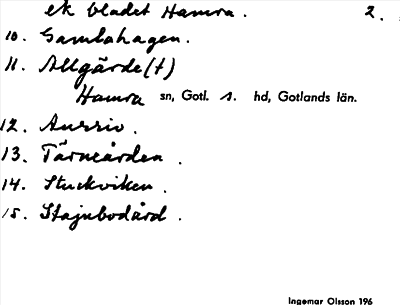 ek bladet Hamra. 2.
10. Gamlahagen.
11. Allgärde(t)
Hamra sn, Gotl. s. hd, Gotlands län.
12. Aursviv.
13. Tärneården.
14. Stuckviken.
15. Stajnbodård.
Ingemar Olsson 196